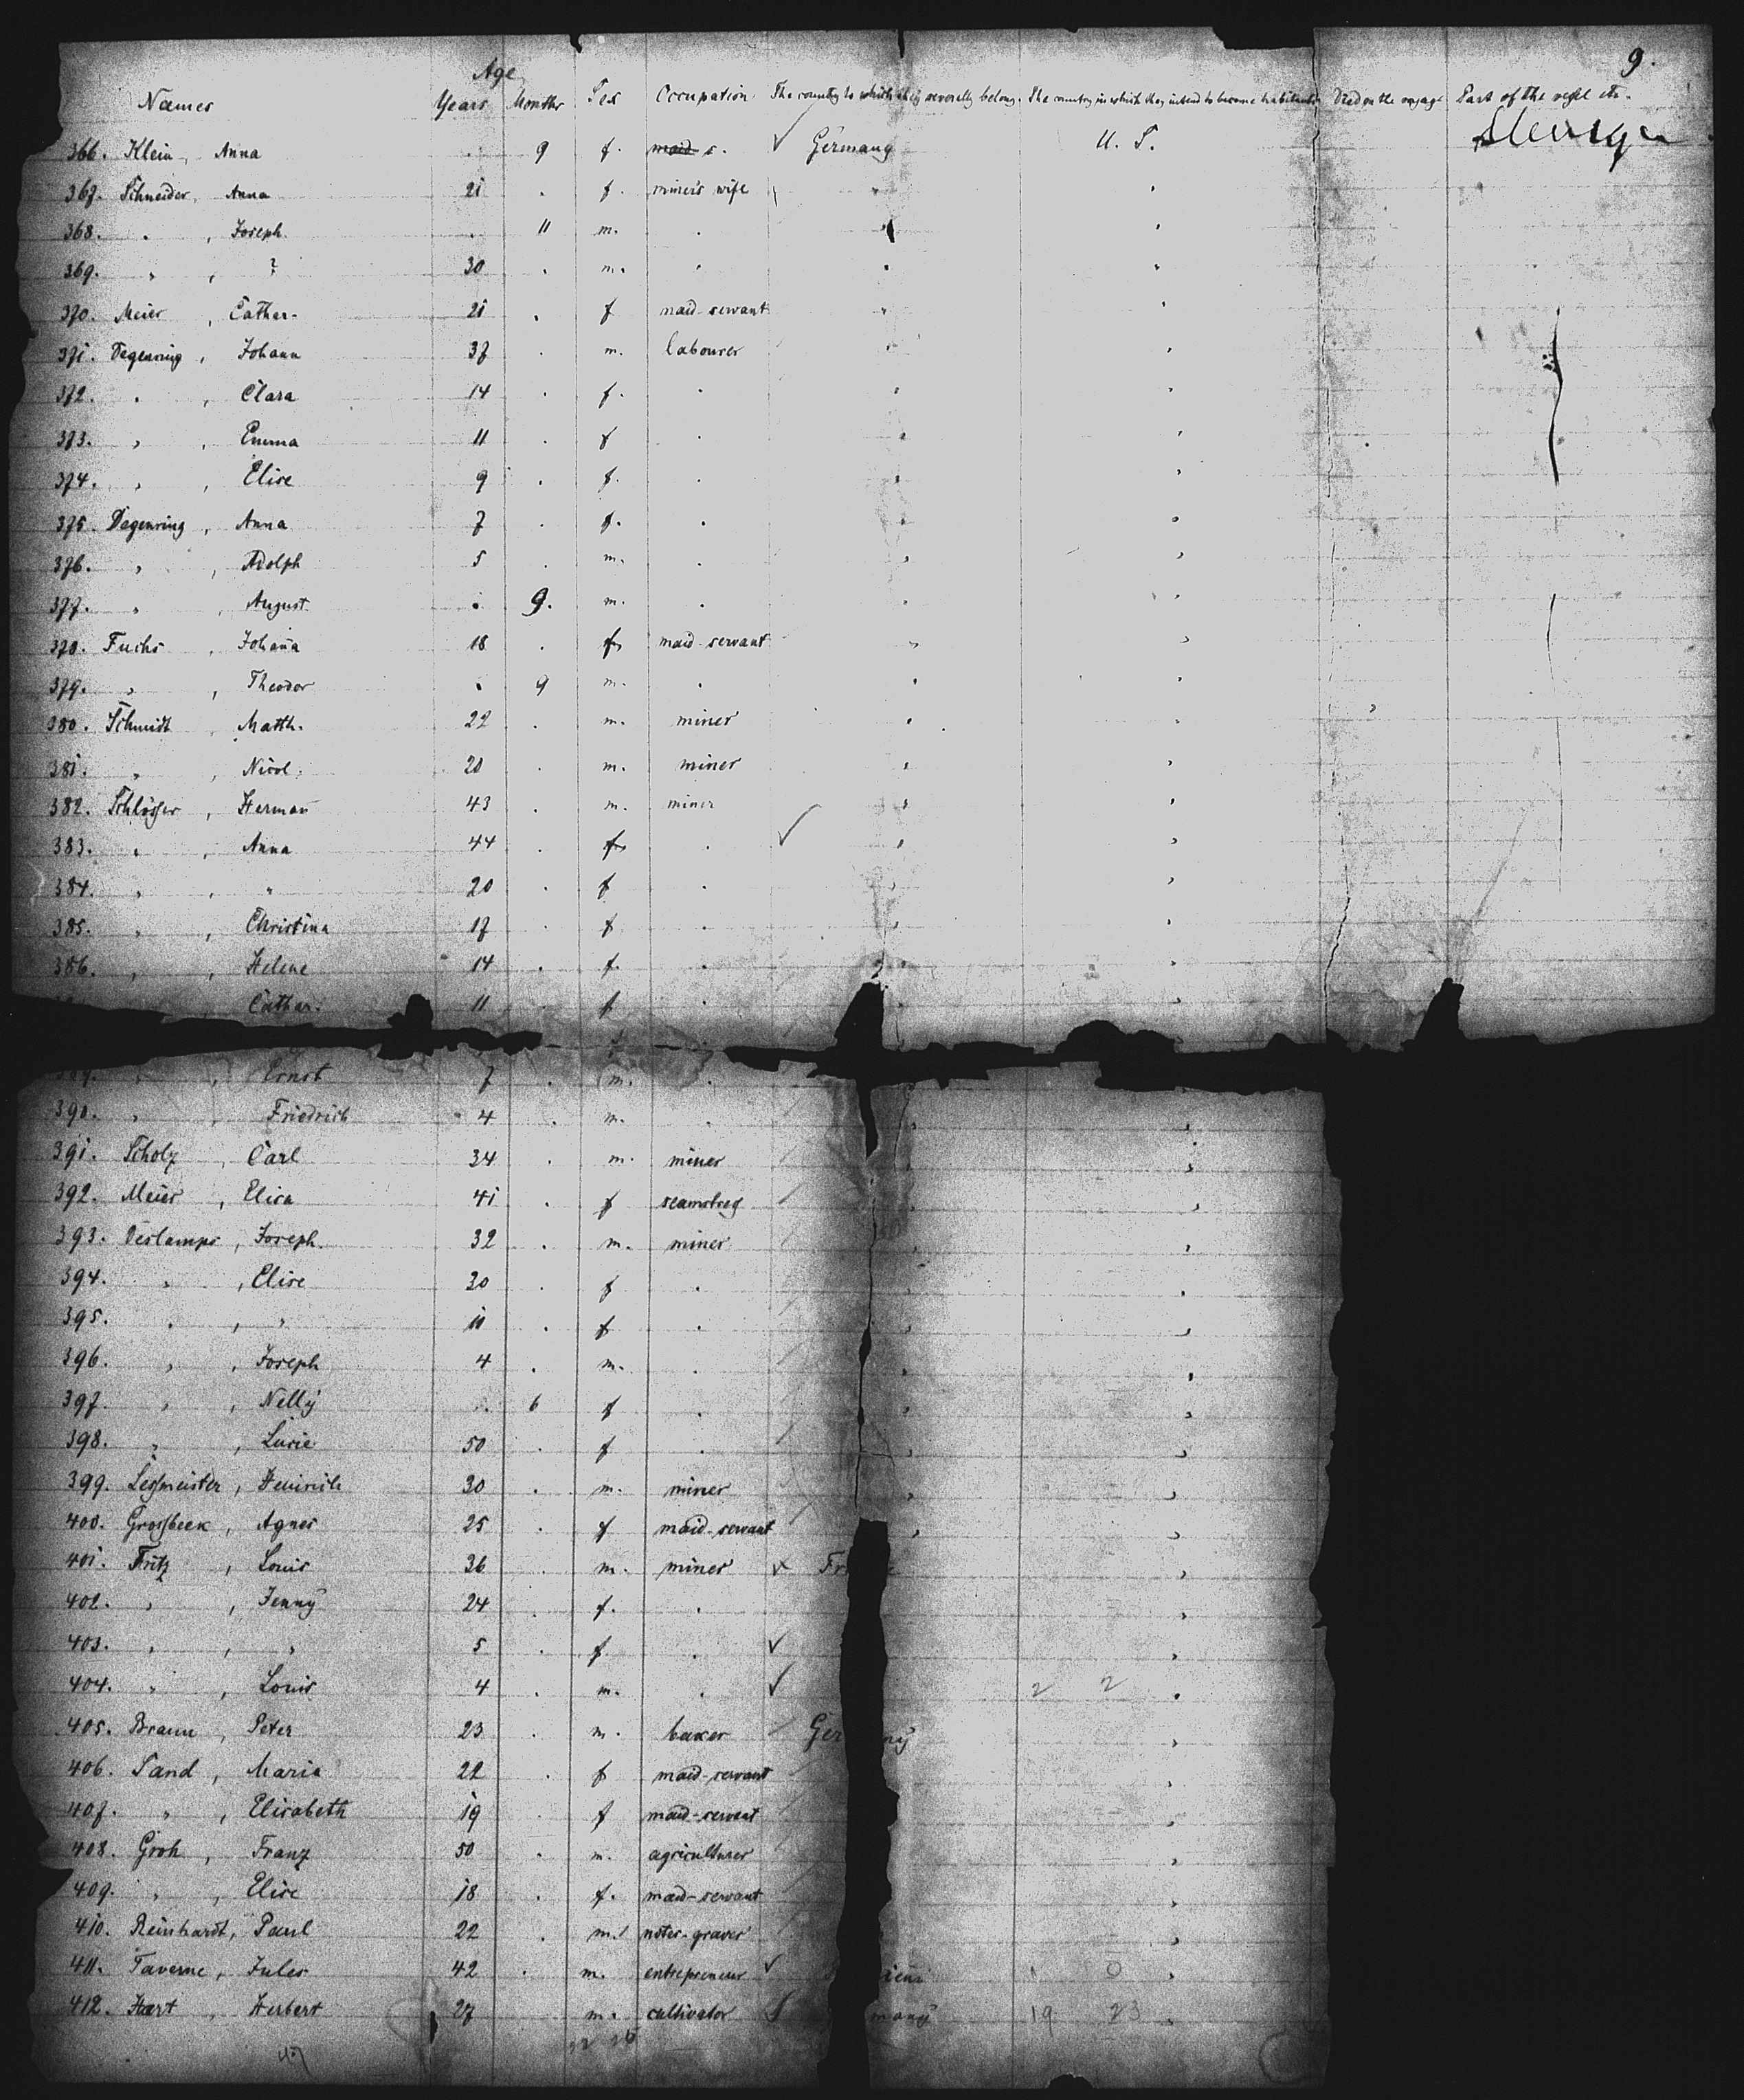 9.
Names Age Years Months Sex Occupation The country to which they severally belong. The country in which they intend to become inhabitants Died on the voyage Part of the vessel etc.
366. Klein, Anna . 9 f. Germany U. S.
367. Schneider, Anna 21 . f. miner's wife
368. " , Joseph . 11 m. .
369. " , ? 30 . m. "
370. Meier, Cathar. 21 . f maid-servant
371. Degenring, Johann 37 . m. labourer
372. " , Clara 14 . f. .
373. " , Emma 11 . f .
374. " , Elise 9 . f. .
375. Degenring, Anna 7 . f. .
376. " , Adolph 5 . m. .
377. " , August . 9. m. .
378. Fuchs, Johan̄a 18 . f maid-servant
379. " , Theodor . 9 m. .
380. Schmidt, Matth. 22 . m. miner
381. " , Nicol. 20 . m. miner
382. Schlösser, Herman̄ 43 . m. miner
383. " , Anna 44 . f .
384. " , " 20 . f .
385. " , Christina 17 . f .
386. " , Helene 14 . f. .
Cathar. 11 . f .
Ernst 7 . m. .
390. " , Friedrich 4 . m. .
391. Scholz, Carl 34 . m. miner
392. Meier, Elisa 41 . f seamstress
393. Deslamps, Joseph. 32 . m. miner
394. " , Elise 30 . f .
395. " , " . f .
396. " , Joseph 4 . m. .
397. " , Nelly . 6 f .
398. " , Lucie 50 . f .
399. Lessmeister, Heinrich 30 . m. miner
400. Grossbeek, Agnes 25 . f maid-servant
401. Fritz, Louis 36 m. miner
402. " , Jenny 24 . f. .
403. " , " 5 . f .
404. " , Louis 4 . m. . 2 2
405. Braun, Peter 23 . m. baker Ger ny
406. Sand, Maria 22 . f maid-servant
407. " , Elisabeth 19 f maid-servant
408. Groh, Franz 50 . m. agriculturer
409. " , Elise 18 . f. maid-servant
410. Reinhardt, Paul 22 . m. notes-graver
411. Taverne, Jules 42 . m. entrepreneur 1 0
412. Hart, Herbert 27 m. cultivator many 19 23
22 26